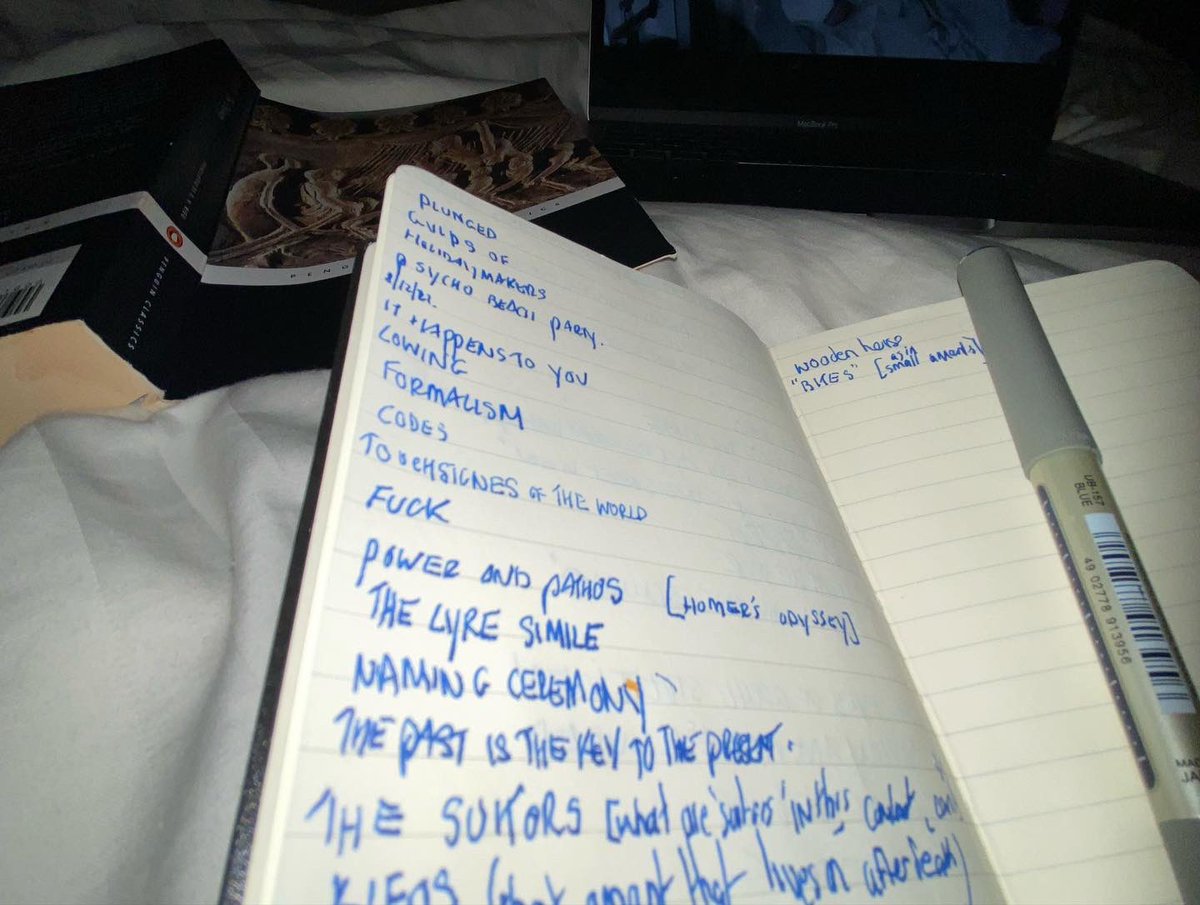 PLUNGED
GULPS OF
HOLIDAYMAKERS
PSYCHO BEACH PARTY.
8/12/21.
IT HAPPENS TO YOU
LOWING
FORMALISM
CODES
TOUCHSIGNES OF THE WORLD
FUCK
POWER AND PATHOS [HOMER'S ODYSSEY]
THE LYRE SIMILE
NAMING CEREMONY
THE PAST IS THE KEY TO THE PRESENT.
THE SUITORS [what are 'suitors' in this context,
KLEOS (that amount that lives on after death)
wooden horse
"BIKES" [as in small amounts]
PENGUIN CLASSICS
PENG
MacBook Pro
UB-157
BLUE
49 02778 913956